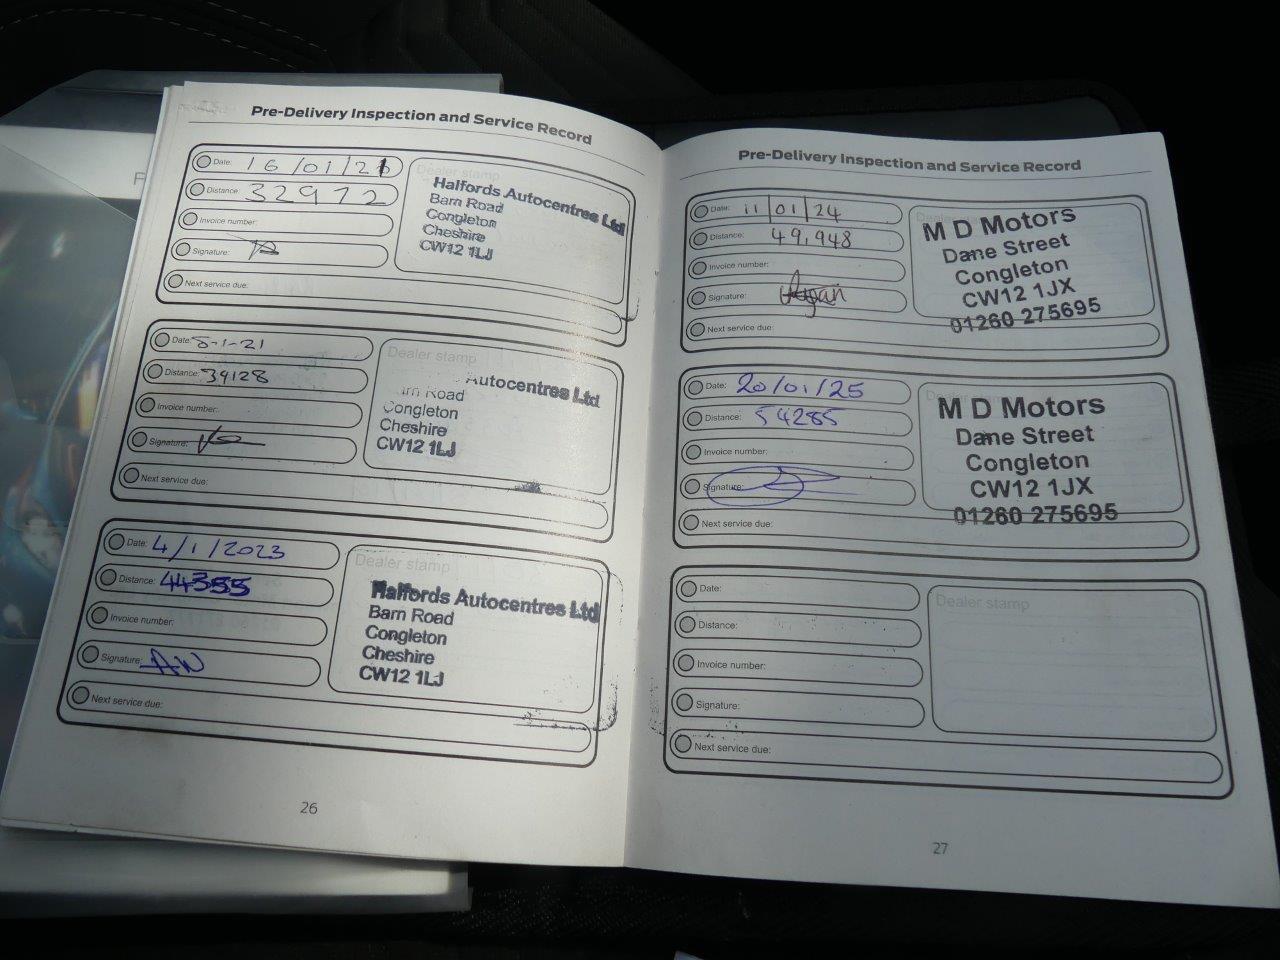 Pre-Delivery Inspection and Service Record
Date: 16/01/21
Distance: 32972
Invoice number:
Signature:
Next service due:
Dealer stamp
Halfords Autocentres Ltd
Barn Road
Congleton
Cheshire
CW12 1LJ
Date: 8-1-21
Distance: 39128
Invoice number:
Signature:
Next service due:
Dealer stamp
Autocentres Ltd
Barn Road
Congleton
Cheshire
CW12 1LJ
Date: 4/1/2023
Distance: 44355
Invoice number:
Signature: AW
Next service due:
Dealer stamp
Halfords Autocentres Ltd
Barn Road
Congleton
Cheshire
CW12 1LJ
26
Pre-Delivery Inspection and Service Record
Date: 11/01/24
Distance: 49,948
Invoice number:
Signature:
Next service due:
M D Motors
Dane Street
Congleton
CW12 1JX
01260 275695
Date: 20/01/25
Distance: 54285
Invoice number:
Signature:
Next service due:
M D Motors
Dane Street
Congleton
CW12 1JX
01260 275695
Date:
Distance:
Invoice number:
Signature:
Next service due:
Dealer stamp
27